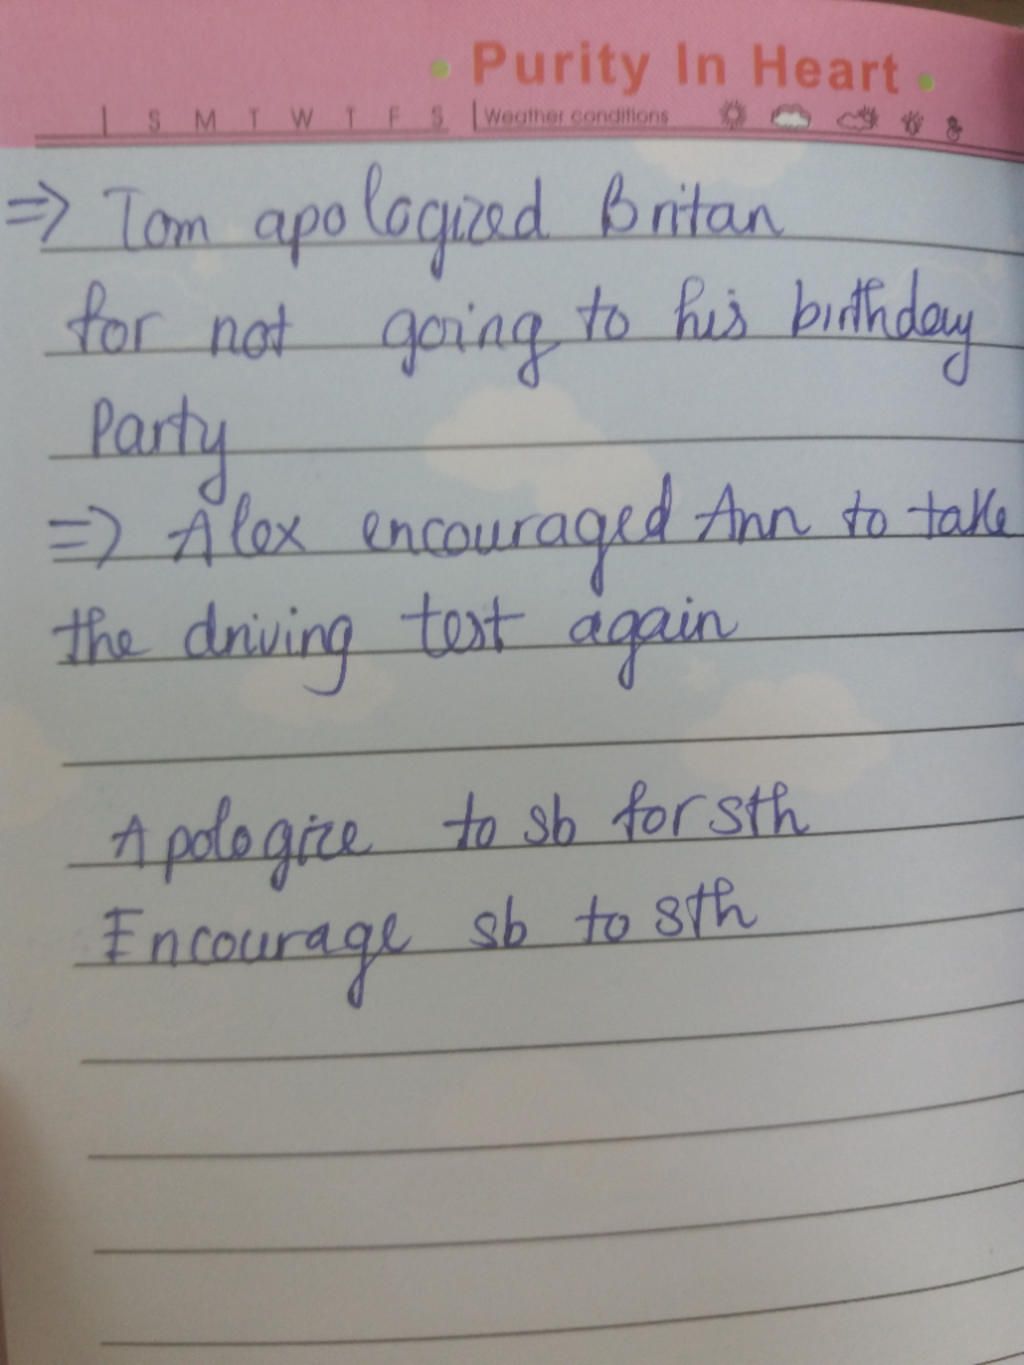 Purity In Heart
S M T W T F S Weather conditions
=> Tom apologized Britan
for not going to his birthday
Party
=> Alex encouraged Ann to take
the driving test again
Apologize to sb for sth
Encourage sb to sth